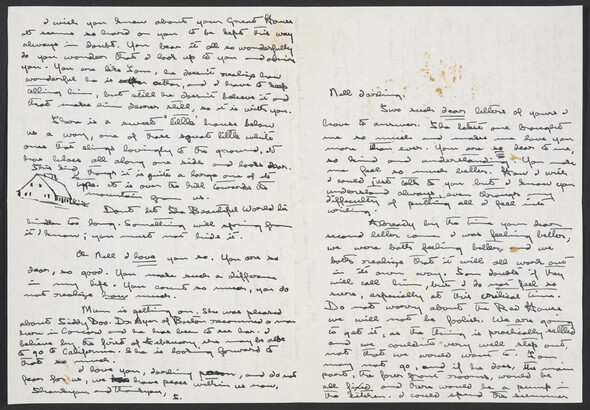 I wish you knew about your Great House
it seems so hard on you to be kept this way
always in doubt. You bear it all so wonderfully
do you wonder that I look up to you and admire
you. You are like Tom, he doesn't realize how
wonderful he is either, and I have to keep
telling him, but still he doesn't believe it and
that makes him dearer still, so it is with you.
There is a sweet "little" house below
us a way, one of those squat little white
ones that clings lovingly to the ground, it
has lilacs all along one side and looks dear.
This kind though it is quite a large one of its
type. it is over the hill towards the
mountain from us.
Dont let the Beautiful World be
hidden too long. Something will spring from
it I know; you must not hide it.
Oh Nell I love you so. You are so
dear, so good. You make such a difference
in my life. You count so much, you do
not realize how much.
Mum is getting on. She was pleased
about Siddy Boo. Dr. Ayer of Boston recommended a man
here in Concord and he has been to see her. I
believe by the first of February she may be able
to go to California. She is looking forward to
that so much.
I love you, darling, and do not
fear for us, we have peace within us now,
Thankyou and thankyou,
S.
Nell darling.
Two such dear letters of yours I
have to answer. The late one brought
me so much makes me love you
more than ever. You are so dear to me,
so kind and understanding. You make
me feel so much better. How I wish
I could just talk to you but I know you
understand always, even through my
difficulty of putting all I feel into
writing.
Already by the time your dear
second letter came I was feeling better,
we were both feeling better and we
both realize that it will all work out
in its own way. Tom doubts if they
will call him, but I do not feel so
sure, especially at this critical time.
Do not worry about the Red House
we will not be foolish. We are going
to get it, as the thing is practically settled
and we couldn't very well step out,
not that we would want to. Tom
may not go, and if he does, the main
part, the four front rooms, would be
all fixed and there would be a pump in
the kitchen. I could spend the summer